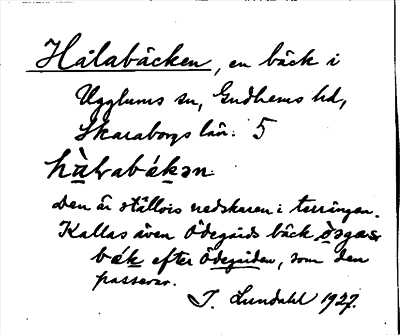 Hålabäcken, en bäck i
Ugglums sn, Gudhems hd,
Skaraborgs län. 5
hàlrabék̲ən
Den är ställvis nedskuren i terrängen.
Kallas även Ödegårds bäck
bék efter Ödegården, som den
passerar.
J. Lundahl 1927.